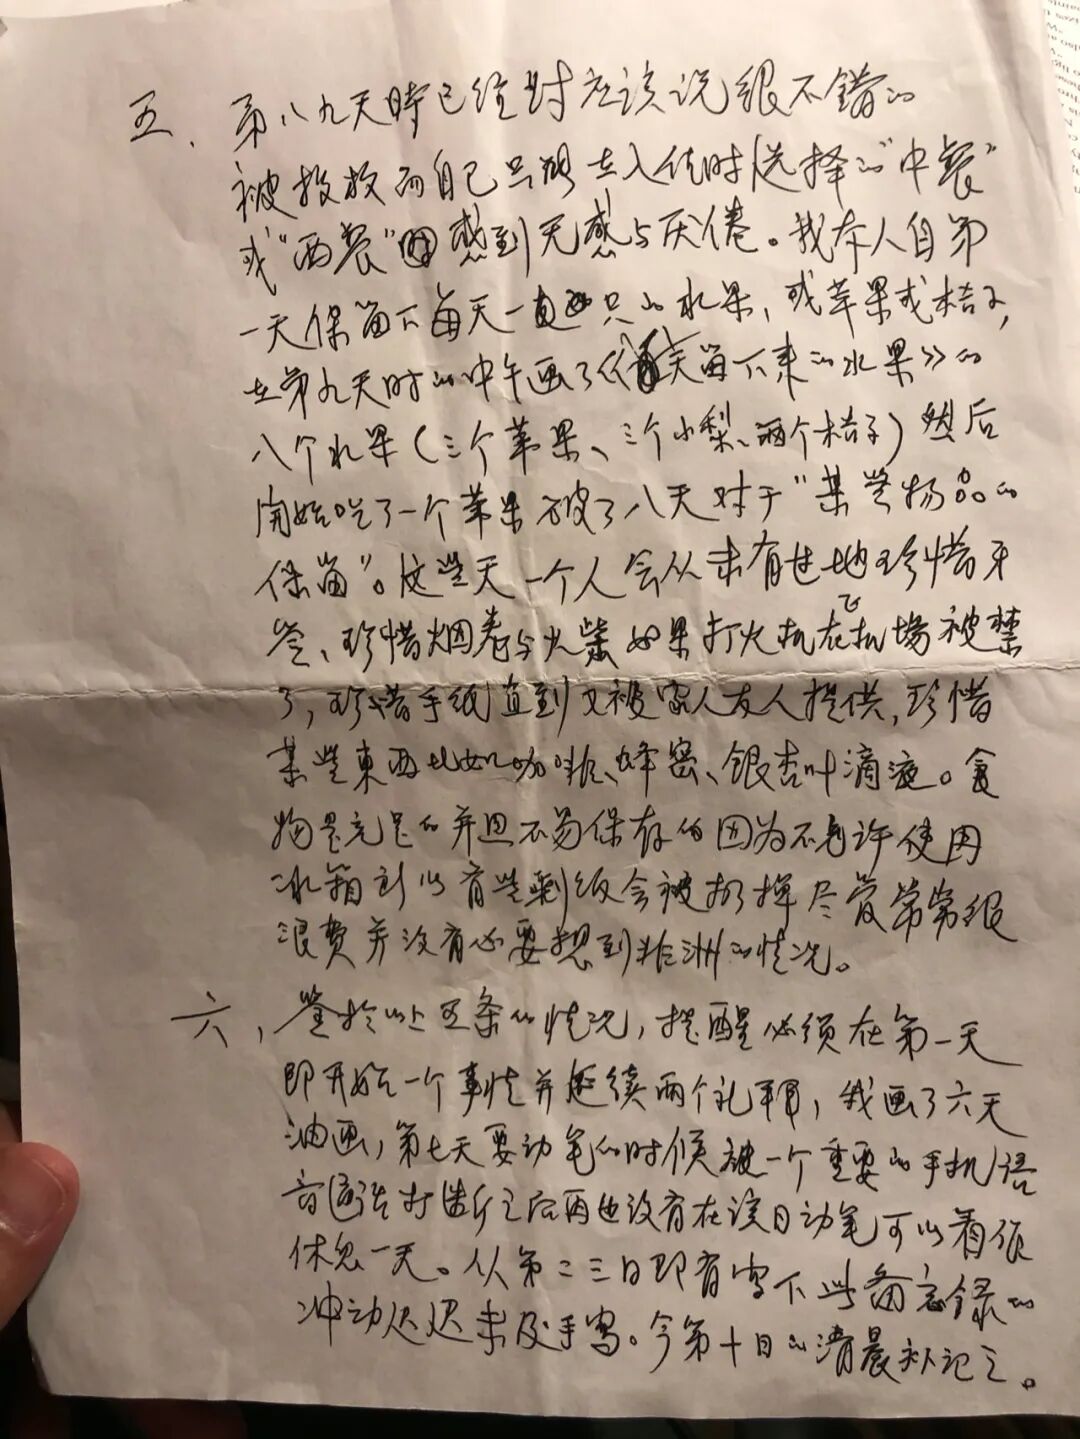 五、第八九天時已经对应该说很不错的
被投放而自己只能在入住时选择的“中餐”
或“西餐”感到无感与厌倦。我本人自第
一天保留下每天一直 只的水果，或苹果或桔子，
在第九天时的中午画了《 天留下来的水果》的
八个水果（三个苹果、三个小梨、两个桔子）然后
開始吃了一个苹果 破了八天对于“某些物品的
保留”。这些天一个人会从未有过地珍惜牙
签、珍惜烟卷与火柴如果打火机在飞机場被禁
了，珍惜手纸直到又被家人友人提供，珍惜
某些東西比如咖啡、蜂蜜、银杏叶滴液。食
物是充足的并且不易保存的因为不允许使用
冰箱所以有些剩饭会被扔掉尽管常常很
浪费并没有必要想到非洲的情况。
六，鉴於以上五条的情况，提醒必须在第一天
即开始一个事情并延续两个礼拜，我画了六天
油画，第七天要动笔的时候被一个重要的手机语
音通话打断之后再也没有在该日动笔可以看做
休息一天。从第二三日即有写下些备忘录的
冲动迟迟未及手写。今第十日的清晨补记之。